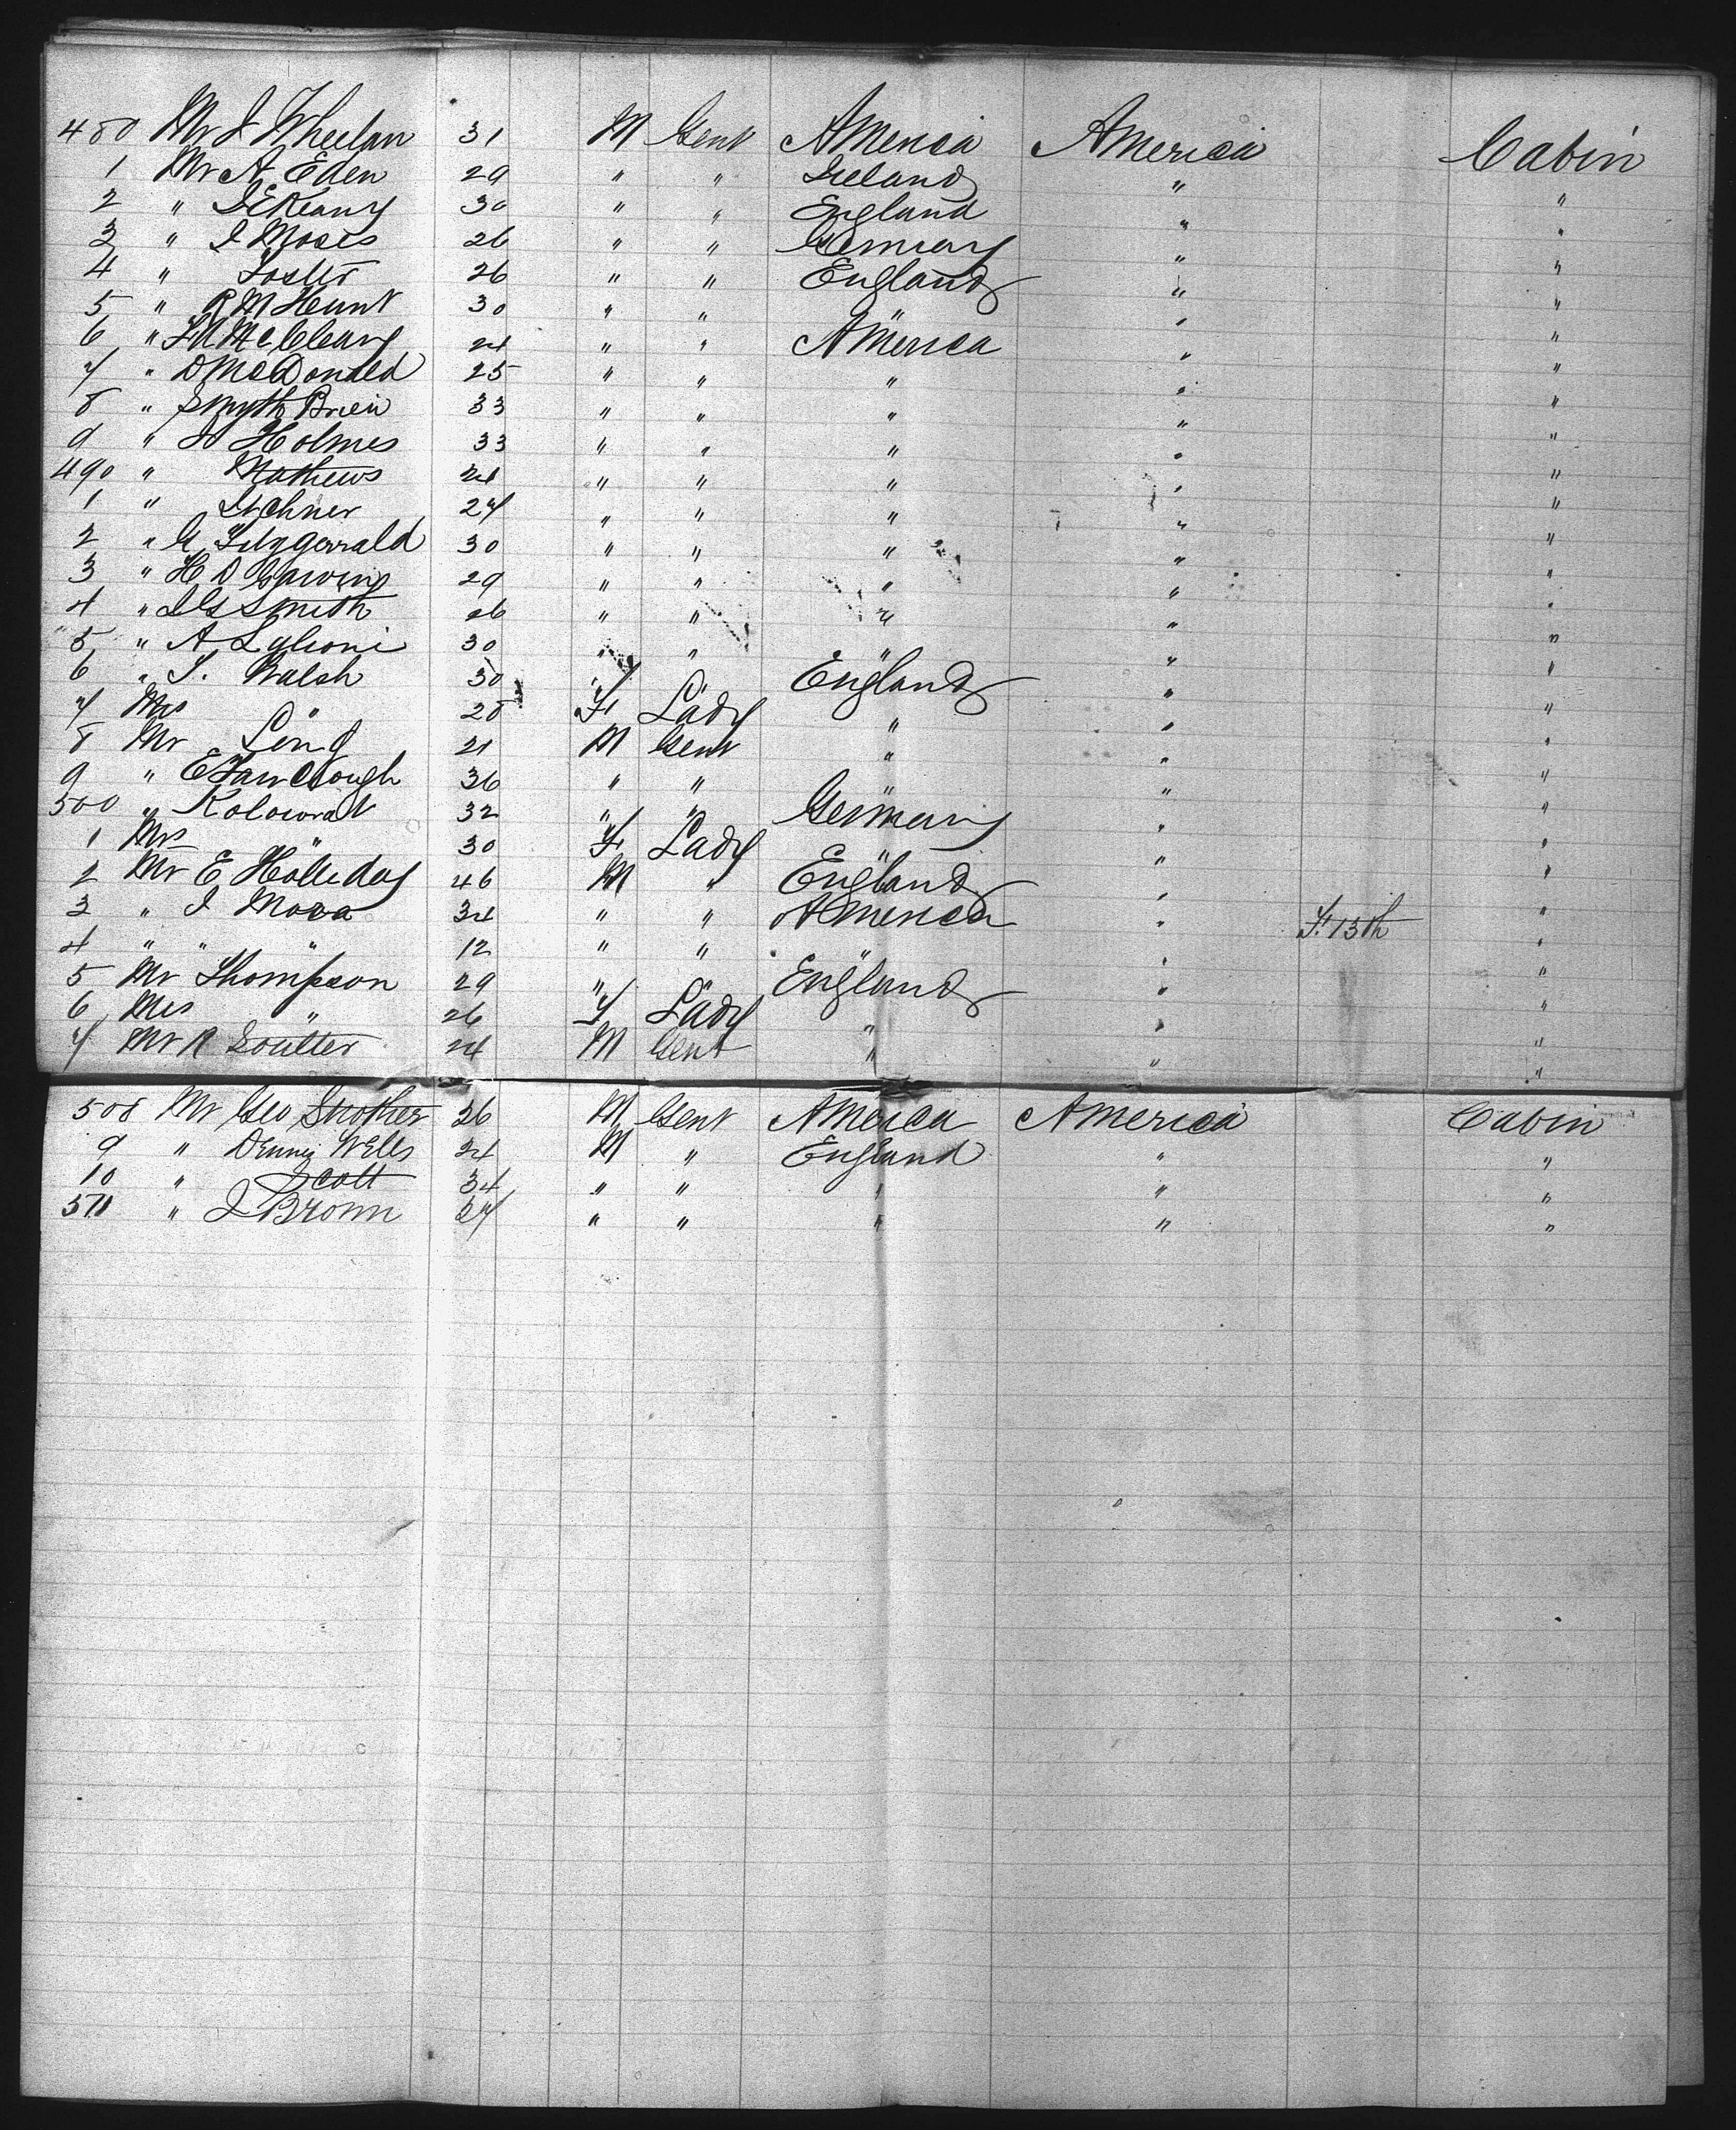 480 Mr J Wheelan 31 M Gent America America Cabin
1 Mr A. Eden 29 " " Ireland " "
2 " J E Keany 30 " " England " "
3 " I Moses 26 " " Germany " "
4 " Foster 26 " " England " "
5 " R M Hunt 30 " " " " "
6 " McCleary 24 " " America " "
7 " D McDonald 25 " " " " "
8 " Smyth Brien 33 " " " " "
9 " Holmes 33 " " " " "
490 " Mathews 24 " " " " "
1 " 27 " " " " "
2 " G Fitzgerrald 30 " " " " "
3 " H D 29 " " " " "
4 " Smith 26 " " " " "
5 " A 30 " " " " "
6 " J. Walsh 30 " " England " "
7 Mrs " 28 F Lady " " "
8 Mr Long 21 M Gent " " "
9 " E Fairclough 36 " " " " "
500 " Kolowrat 32 " " Germany " "
1 Mrs " 30 F Lady " " "
2 Mr E Holliday 46 M " England " "
3 " I Mora 34 " " America " F. 13th "
4 " " " 12 " " " " "
5 Mr Thompson 29 " " England " "
6 Mrs " 26 F Lady " " "
7 Mr R Soutter 24 M Gent " " "
508 Mr Geo Strother 26 M Gent America America Cabin
9 " Denny Wells 24 M " England " "
10 " Scott 34 " " " " "
511 " J Brown 27 " " " " "